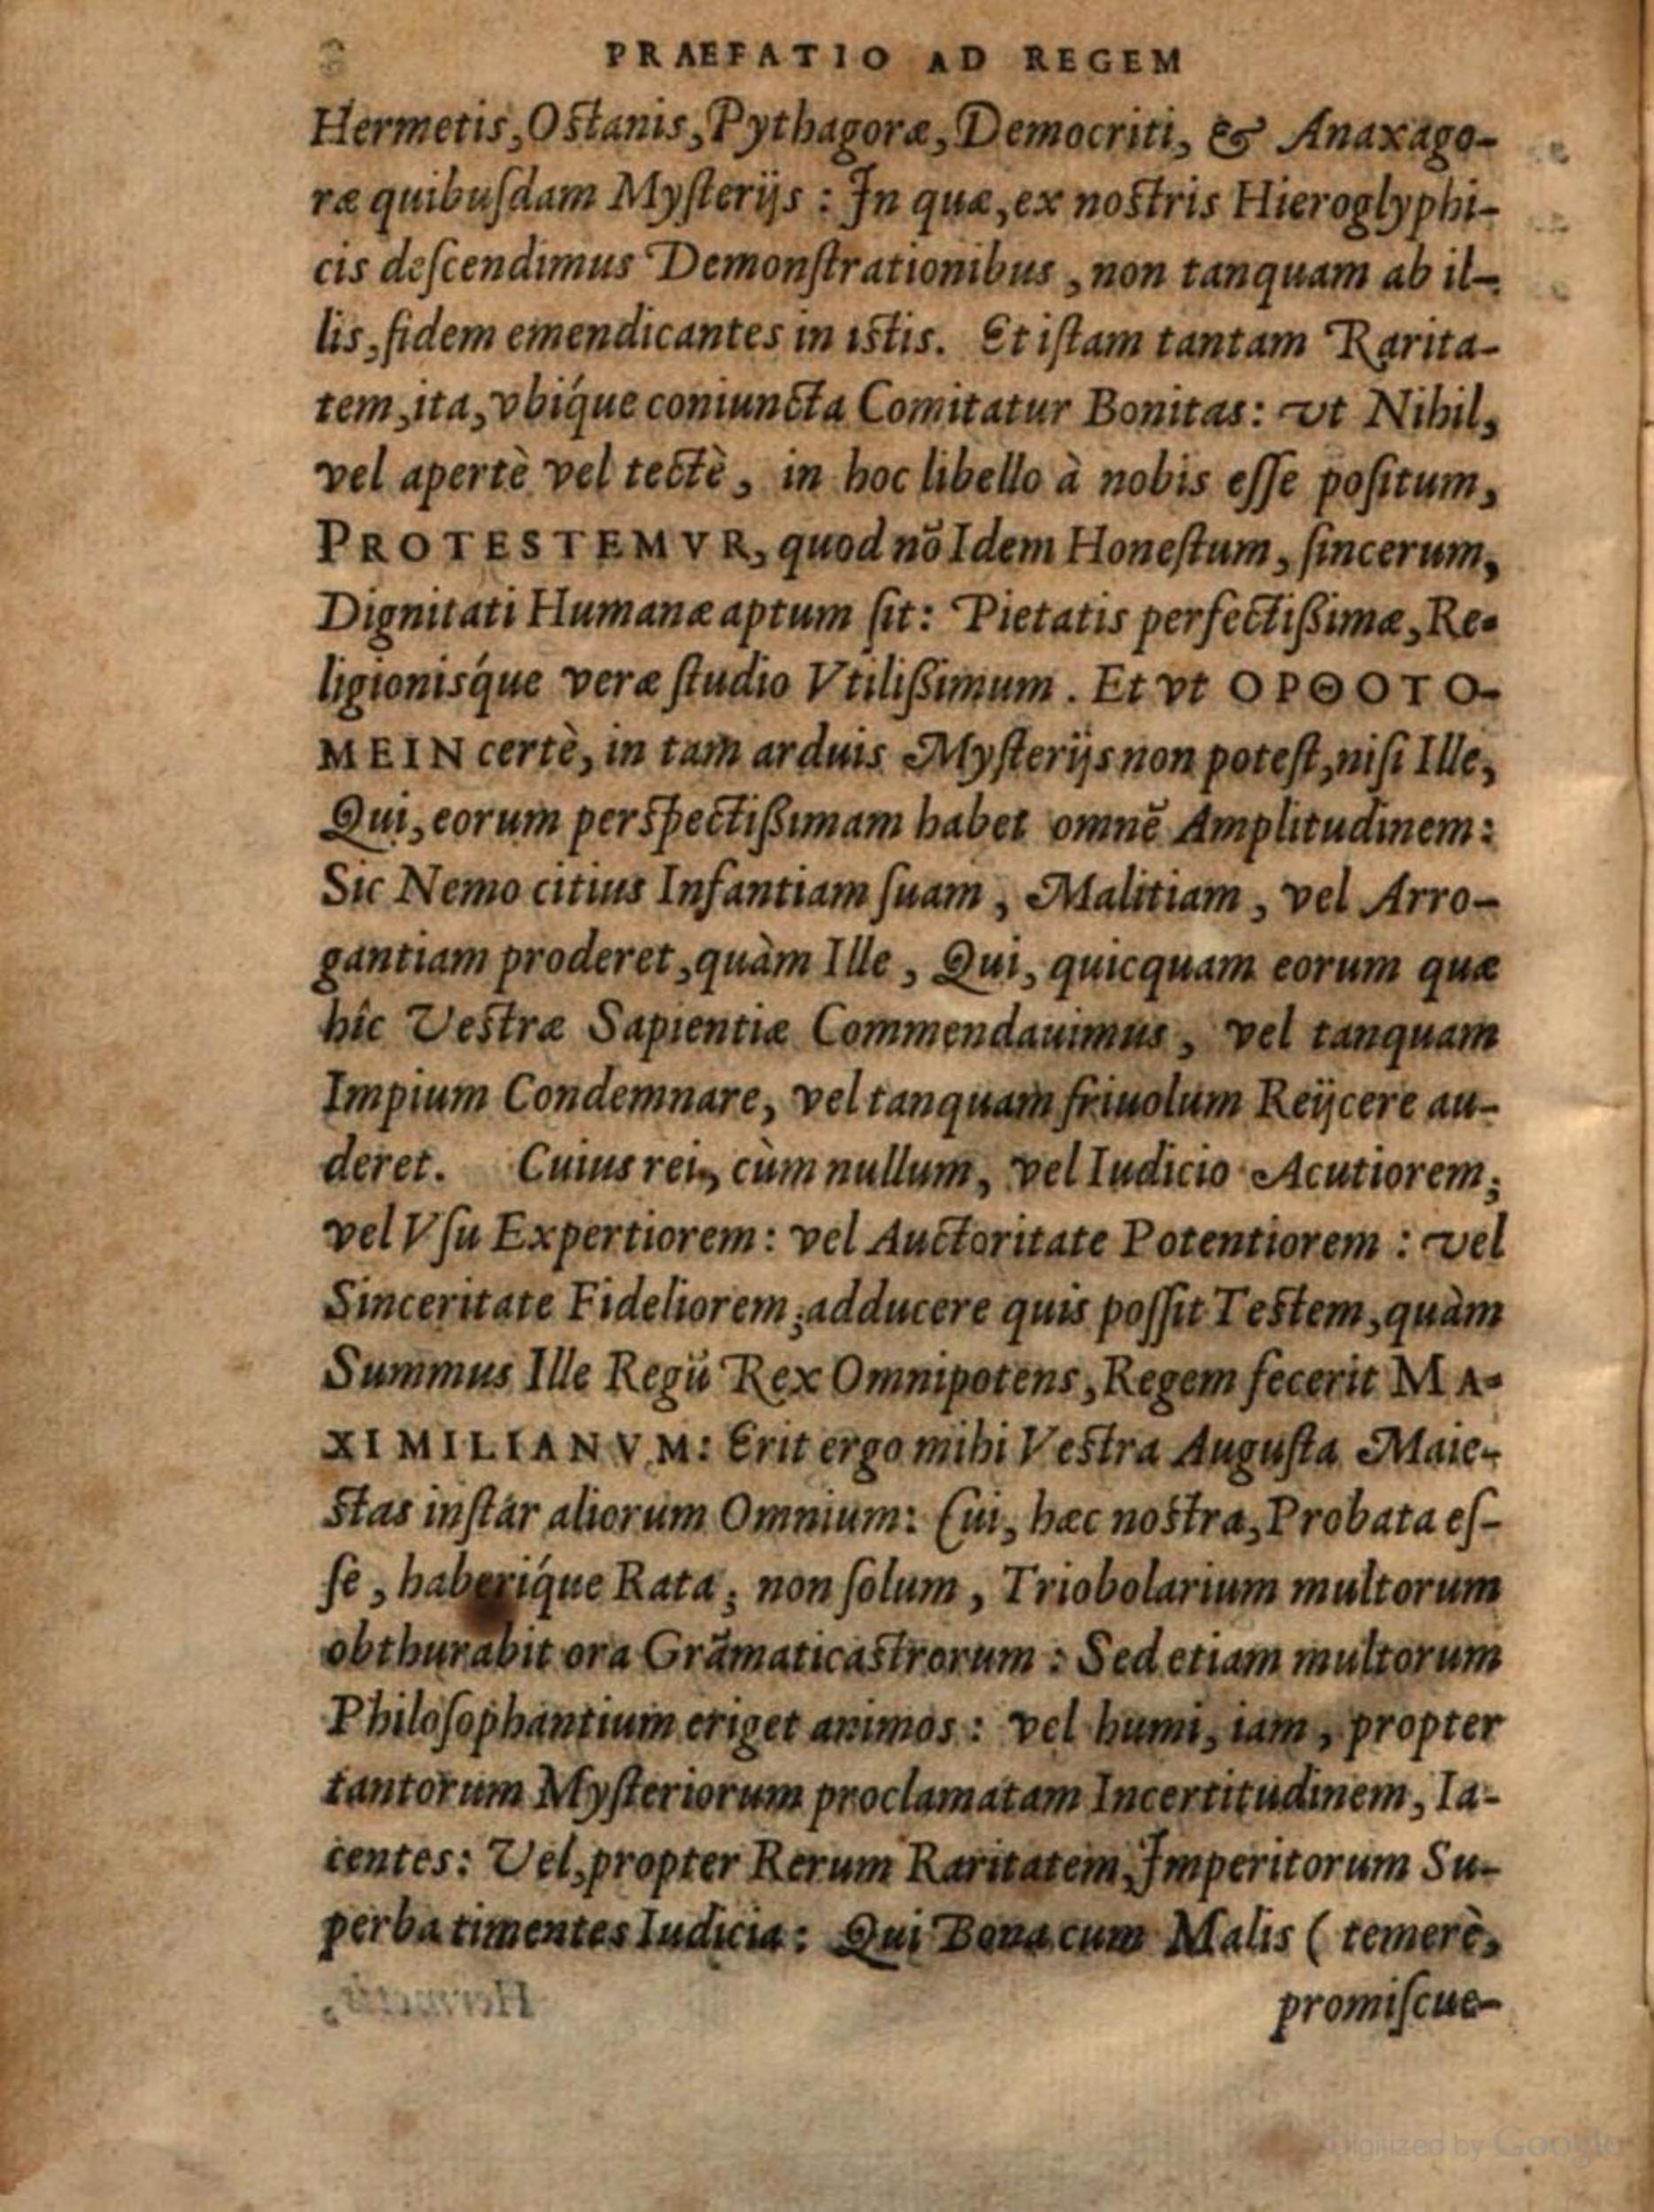 PRAEFATIO AD REGEM
Hermetis, Ostanis, Pythagoræ, Democriti, & Anaxago-
ræ quibuſdam Myſterijs : In quæ, ex nostris Hieroglyphi-
cis deſcendimus Demonſtrationibus, non tanquam ab il-
lis, fidem emendicantes in istis. Et iſtam tantam Rarita-
tem, ita, vbíque coniuncta Comitatur Bonitas: vt Nihil,
vel apertè vel tectè, in hoc libello à nobis eſſe poſitum,
PROTESTEMVR, quod nõ Idem Honeſtum, ſincerum,
Dignitati Humanæ aptum ſit: Pietatis perfectißimæ, Re-
ligionisq́ue veræ ſtudio Vtilißimum. Et vt ΟΡΘΟΤΟ-
ΜΕΙΝ certè, in tam arduis Myſterijs non poteſt, niſi Ille,
Qui, eorum perspectißimam habet omnẽ Amplitudinem:
Sic Nemo citius Infantiam ſuam, Malitiam, vel Arro-
gantiam proderet, quàm Ille, Qui, quicquam eorum quæ
hîc Vestræ Sapientiæ Commendauimus, vel tanquam
Impium Condemnare, vel tanquam friuolum Reijcere au-
deret. Cuius rei, cùm nullum, vel Iudicio Acutiorem;
vel Vſu Expertiorem: vel Auctoritate Potentiorem : vel
Sinceritate Fideliorem; adducere quis poſſit Testem, quàm
Summus Ille Regũ Rex Omnipotens, Regem fecerit MA-
XIMILIANVM: Erit ergo mihi Vestra Auguſta Maie-
stas inſtar aliorum Omnium: Cui, hæc nostra, Probata eſ-
ſe, haberiq́ue Rata; non ſolum, Triobolarium multorum
obthurabit ora Grãmaticastrorum : Sed etiam multorum
Philoſophantium eriget animos : vel humi, iam, propter
tantorum Myſteriorum proclamatam Incertitudinem, Ia-
centes: Vel, propter Rerum Raritatem, Imperitorum Su-
perba timentes Iudicia: Qui Bona cum Malis ( temerè,
promiſcue-
Digitized by Google